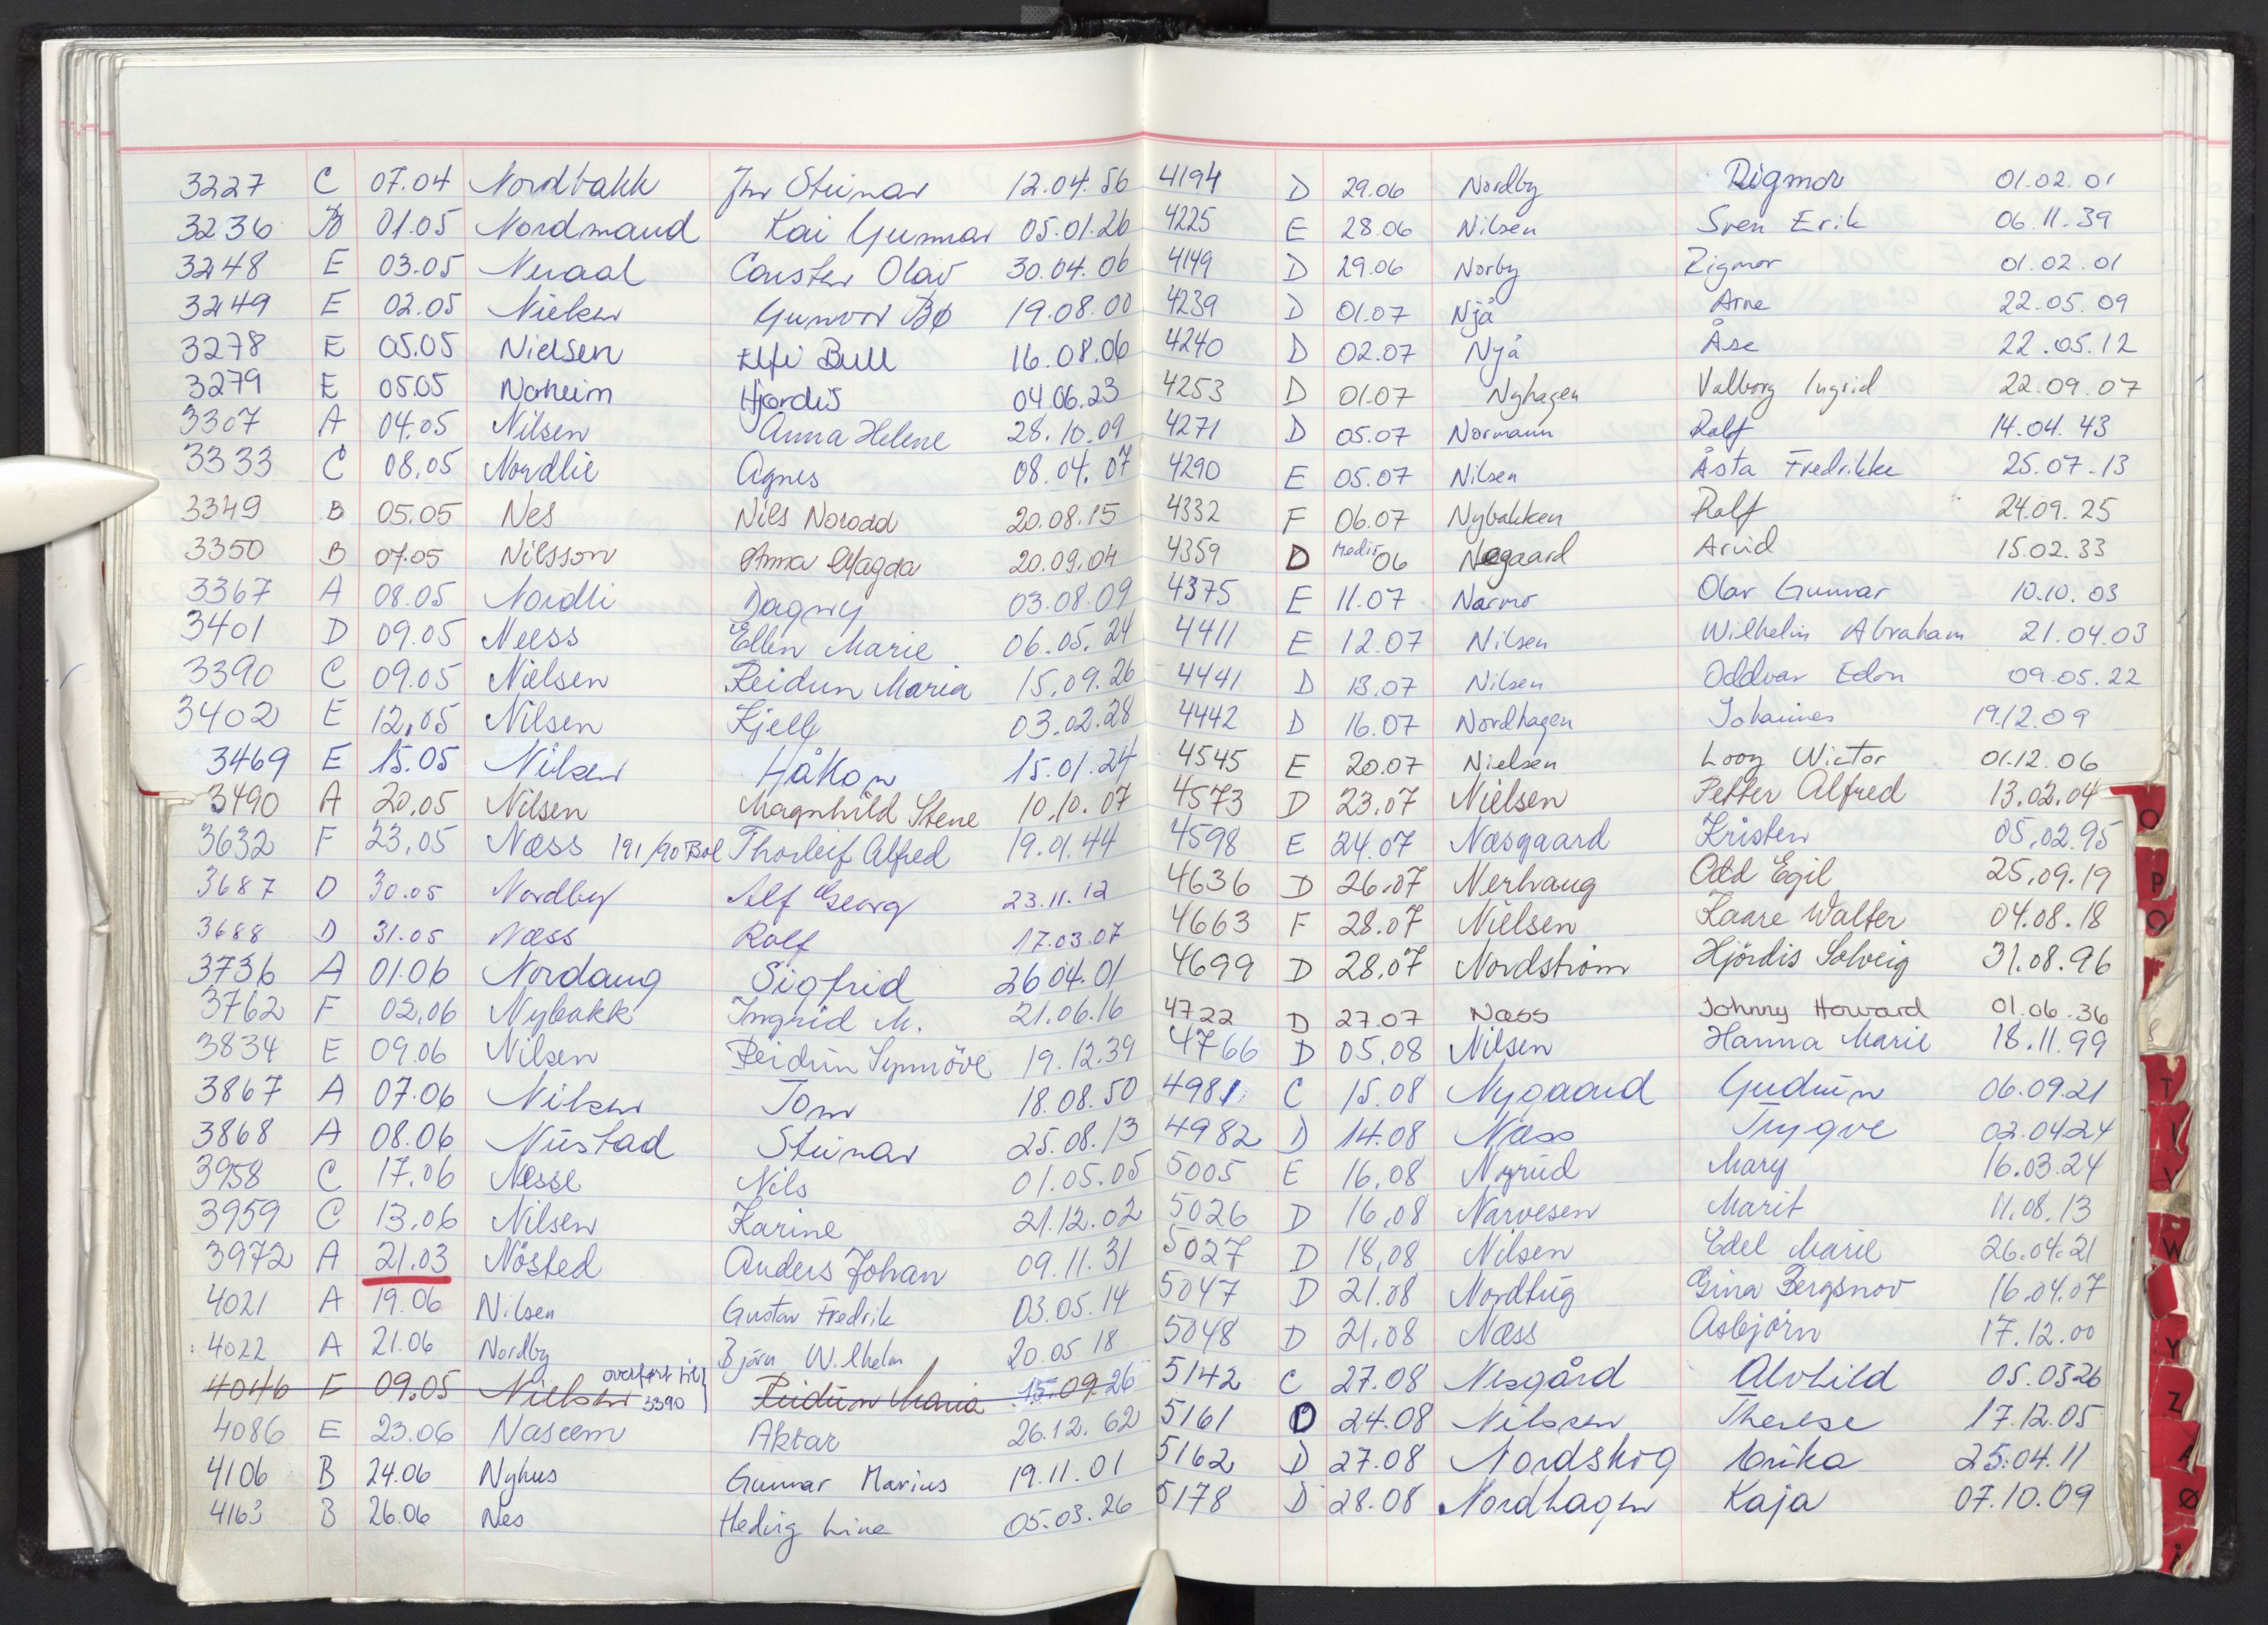 3227 C 07.04 Nordbakk Jon Steinar 12.04.56
3236 B 01.05 Nordmand Kai Gunnar 05.01.26
3248 E 03.05 Neraal Carsten Olav 30.04.06
3249 E 02.05 Nielsen Gunvor Bø 19.08.00
3278 E 05.05 Nielsen Elfi Bull 16.08.06
3279 E 05.05 Noheim Hjørdis 04.06.23
3307 A 04.05 Nilsen Anna Helene 28.10.09
3333 C 08.05 Nordlie Agnes 08.04.07
3349 B 05.05 Nes Nils Norodd 20.08.15
3350 B 07.05 Nilsson Anna Magda 20.09.04
3367 A 08.05 Nordli Dagny 03.08.09
3401 D 09.05 Neess Ellen Marie 06.05.24
3390 C 09.05 Nielsen Reidun Maria 15.09.26
3402 E 12.05 Nilsen Kjell 03.02.28
3469 E 15.05 Nilsen Håkon 15.01.24
3490 A 20.05 Nilsen Magnhild Stene 10.10.07
3632 F 23.05 Næss 191/90 Bol Thorleif Alfred 19.01.44
3687 D 30.05 Nordby Alf Georg 23.11.12
3688 D 31.05 Næss Rolf 17.03.07
3736 A 01.06 Nordaug Sigfrid 26 04.01
3762 F 02.06 Nybakk Ingrid M. 21.06.16
3834 E 09.06 Nilsen Reidun Synnöve 19.12.39
3867 A 07.06 Nilsen Tom 18.08.50
3868 A 08.06 Nustad Steinar 25.08.13
3958 C 17.06 Nesse Nils 01.05.05
3959 C 13.06 Nilsen Karine 21.12.02
3972 A 21.03 Nösted Anders Johan 09.11.31
4021 A 19.06 Nilsen Gustav Fredrik 03.05.14
4022 A 21.06 Nordby Bjørn Wilhelm 20.05.18
4046 F 09.05 Nielsen overført til 3390 Reidun Maria 15.09.26
4086 E 23.06 Naseem Aktar 26.12.62
4106 B 24.06 Nyhus Gunnar Marius 19.11.01
4163 B 26.06 Nes Hedvig Line 05.03.26
4194 D 29.06 Nordby Rigmor 01.02.01
4225 E 28.06 Nilsen Sven Erik 06.11.39
4149 D 29.06 Norby Rigmor 01.02.01
4239 D 01.07 Njå Arne 22.05.09
4240 D 02.07 Njå Åse 22.05.12
4253 D 01.07 Nyhagen Valborg Ingrid 22.09.07
4271 D 05.07 Normann Rolf 14.04.43
4290 E 05.07 Nilsen Åsta Fredrikke 25.07.13
4332 F 06.07 Nybakken Rolf 24.09.25
4359 D Medio 06 Nøgaard Arvid 15.02.33
4375 E 11.07 Narmo Olav Gunnar 10.10.03
4411 E 12.07 Nilsen Wilhelm Abraham 21.04.03
4441 D 13.07 Nilsen Oddvar Edon 09.05.22
4442 D 16.07 Nordhagen Johannes 19.12.09
4545 E 20.07 Nielsen Looy Wictor 01.12.06
4573 D 23.07 Nielsen Petter Alfred 13.02.04
4598 E 24.07 Næsgaard Kristen 05.02.95
4636 D 26.07 Nerhaug Odd Egil 25.09.19
4663 F 28.07 Nielsen Kaare Walter 04.08.18
4699 D 28.07 Nordstrøm Hjördis Solveig 31.08.96
4722 D 27.07 Næss Johnny Howard 01.06.36
4766 D 05.08 Nilsen Hanna Marie 18.11.99
4981 C 15.08 Nygaard Gudrun 06.09.21
4982 D 14.08 Næss Trygve 02.04.24
5005 E 16.08 Mary 16.03.24
5026 D 16.08 Narvesen Marit 11.08.13
5027 D 18.08 Nilsen Edel Marie 26.04.21
5047 D 21.08 Nordtug Gina Bergsnov 16.04.07
5048 D 21.08 Næss Asbjørn 17.12.00
5142 C 27.08 Nesgård Alvhild 05.03 26
5161 D 24.08 Nilssen Therese 17.12.05
5162 D 27.08 Nordskog Erika 25.04.11
5178 D 28.08 Nordhagen Kaja 07.10.09
O
P
T
V
W
Y
Z
Ø